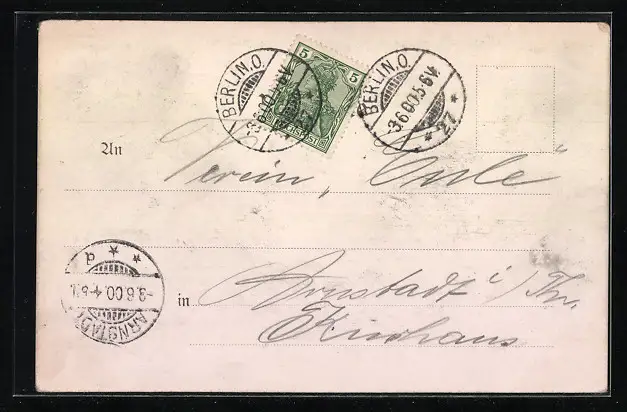 5 5
REICHSPOST
BERLIN,O.
BERLIN,O.
-3.6.00.5-6V.
* 27 *
An
Verein „Eule"
d
-3.6.00.4-5N.
ARNSTADT
in Arnstadt i/Th.
Kurhaus